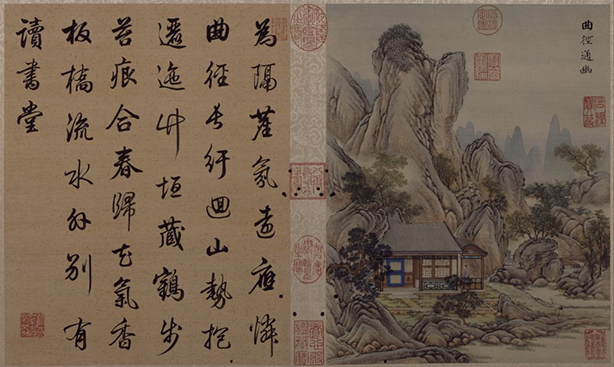 曲徑通幽
為隔塵氛遠應憐
曲徑長紆迴山勢抱
邐迤竹垣藏鶴步
苔痕合春歸花氣香
板橋流水外別有
讀書堂